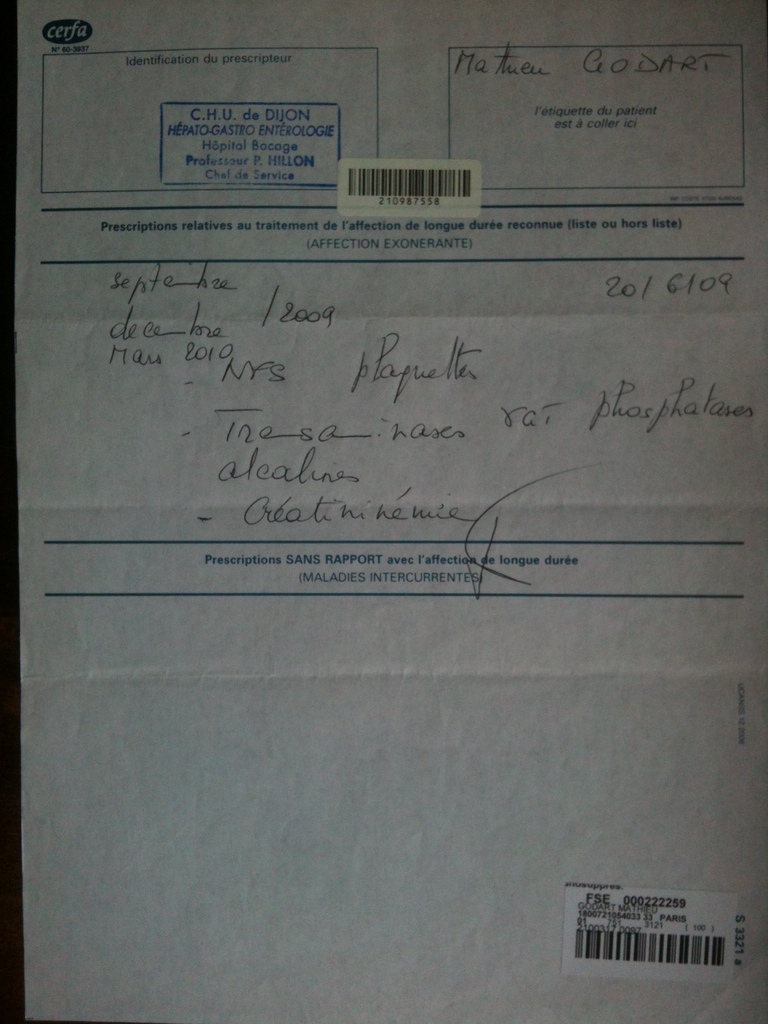 cerfa
N° 60-3937
Identification du prescripteur
Mathieu GODART
C.H.U. de DIJON
HÉPATO-GASTRO ENTÉROLOGIE
Hôpital Bocage
Professeur P. HILLON
Chef de Service
l'étiquette du patient
est à coller ici
210987558
Prescriptions relatives au traitement de l'affection de longue durée reconnue (liste ou hors liste)
(AFFECTION EXONERANTE)
septembre
20/6/09
decembre /2009
Mars 2010
- NFS plaquettes
- Transaminases γGT phosphatases
alcalines
- Créatininémie
Prescriptions SANS RAPPORT avec l'affection de longue durée
(MALADIES INTERCURRENTES)
FSE 000222259
GODART MATHIEU
1800721054033 33 PARIS
01 751 3121 ( 100 )
S 3321 a